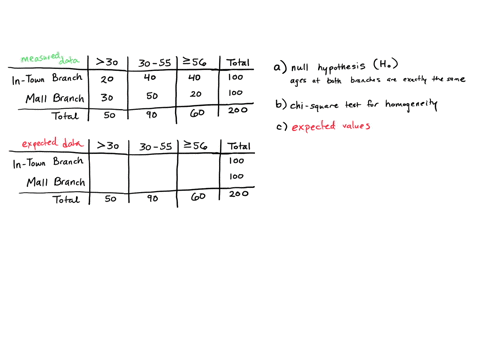 measured data >30 30-55 ≥56 Total
In-Town Branch 20 40 40 100
Mall Branch 30 50 20 100
Total 50 90 60 200
expected data >30 30-55 ≥56 Total
In-Town Branch 100
Mall Branch 100
Total 50 90 60 200
a) null hypothesis (H₀)
ages at both branches are exactly the same
b) chi-square test for homogeneity
c) expected values